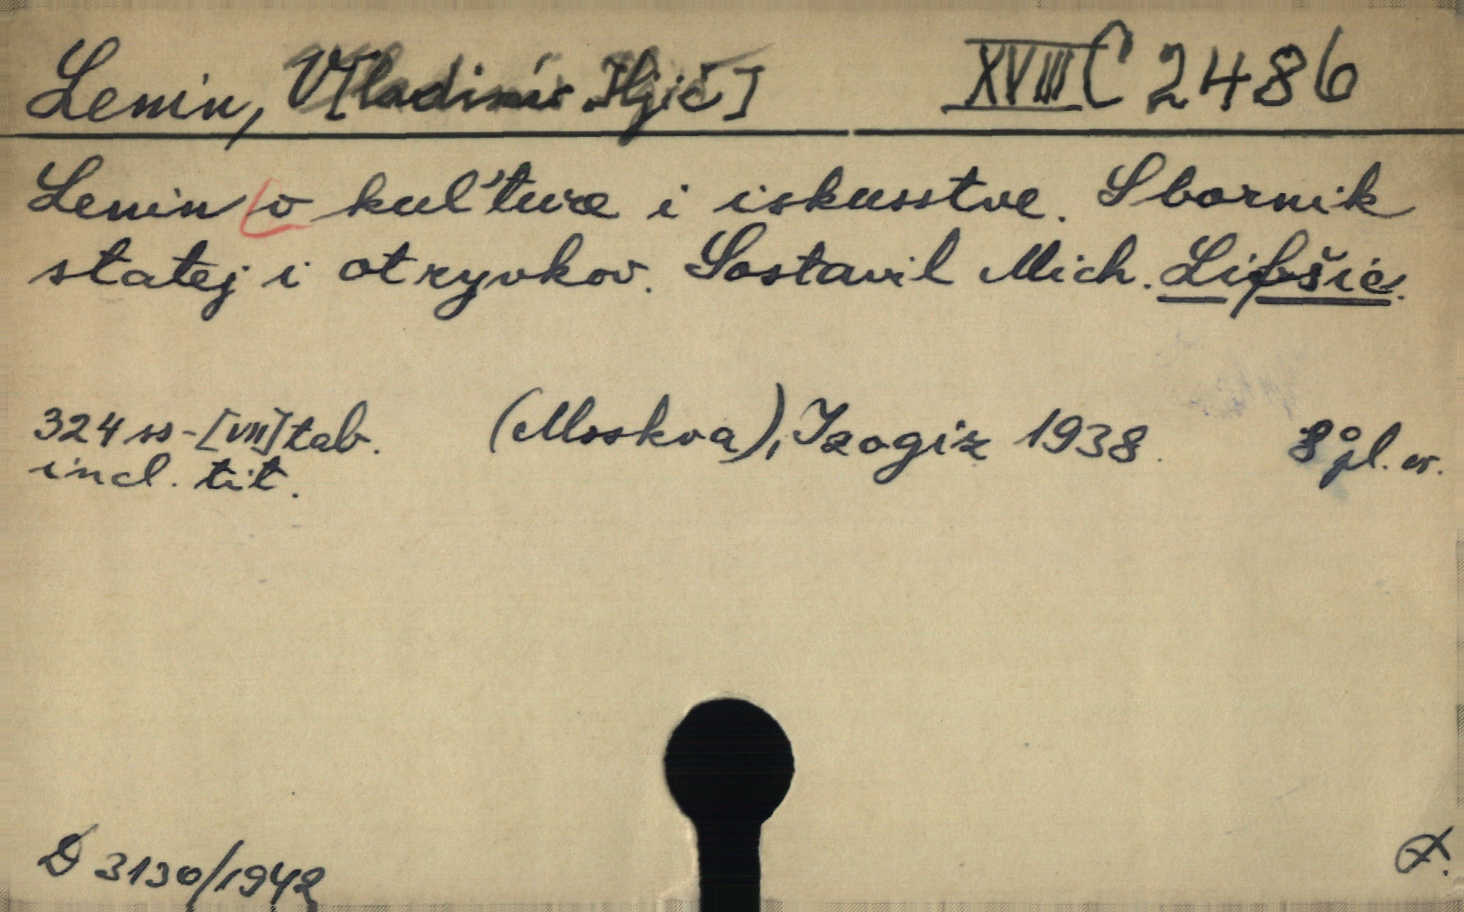 Lenin, V[ladimír Iljič] XVIII C 2486
Lenin o kul'ture i iskusstve. Sbornik
statej i otryvkov. Sostavil Mich. Lifšic.
324 ss - [VII] tab. (Moskva), Izogiz 1938. 8° pl. v.
incl. tit.
D 3130/1942